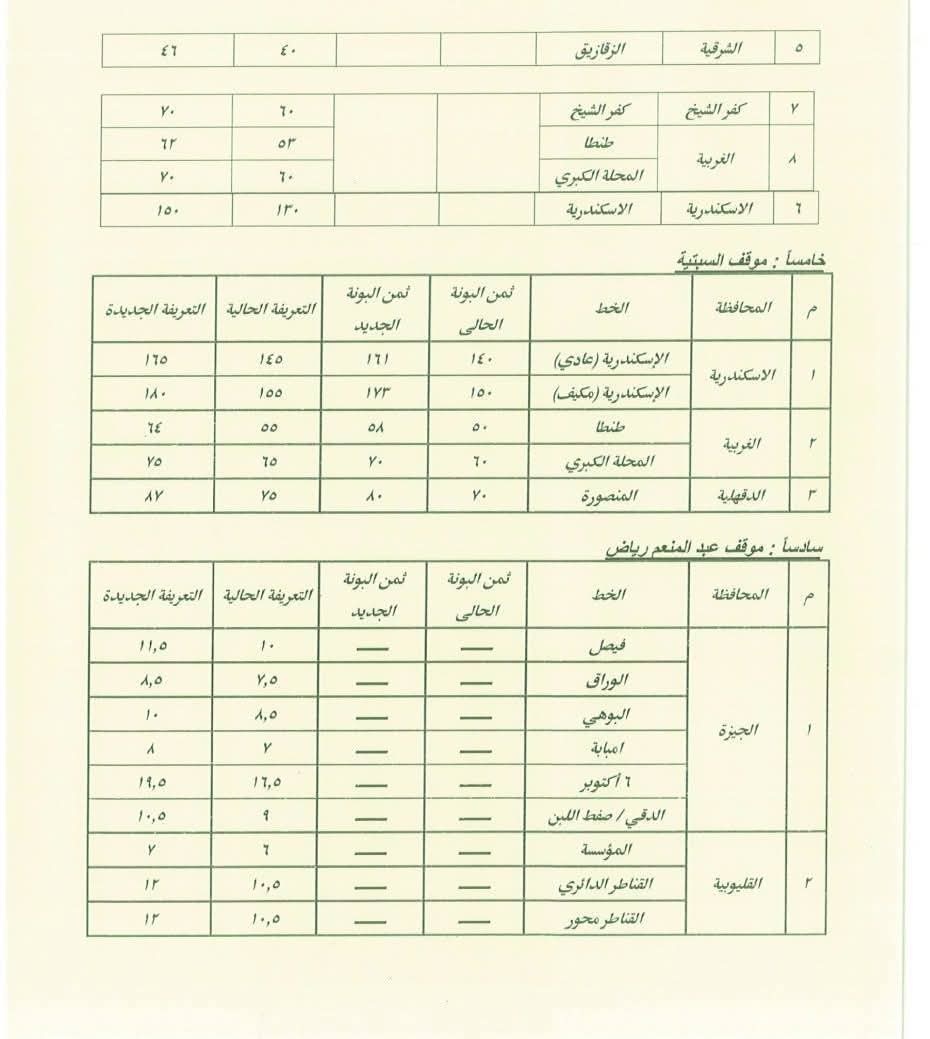 ٥ الشرقية الزقازيق ٤٠ ٤٦
٧ كفر الشيخ كفر الشيخ ٦٠ ٧٠
٨ الغربية طنطا ٥٣ ٦٢
المحلة الكبري ٦٠ ٧٠
٦ الاسكندرية الاسكندرية ١٣٠ ١٥٠
خامساً : موقف السبتية
م المحافظة الخط ثمن البونة الحالى ثمن البونة الجديد التعريفة الحالية التعريفة الجديدة
١ الاسكندرية الإسكندرية (عادي) ١٤٠ ١٦١ ١٤٥ ١٦٥
الإسكندرية (مكيف) ١٥٠ ١٧٣ ١٥٥ ١٨٠
٢ الغربية طنطا ٥٠ ٥٨ ٥٥ ٦٤
المحلة الكبري ٦٠ ٧٠ ٦٥ ٧٥
٣ الدقهلية المنصورة ٧٠ ٨٠ ٧٥ ٨٧
سادساً : موقف عبد المنعم رياض
م المحافظة الخط ثمن البونة الحالى ثمن البونة الجديد التعريفة الحالية التعريفة الجديدة
١ الجيزة فيصل — — ١٠ ١١,٥
الوراق — — ٧,٥ ٨,٥
البوهي — — ٨,٥ ١٠
امبابة — — ٧ ٨
٦ أكتوبر — — ١٦,٥ ١٩,٥
الدقي / صفط اللبن — — ٩ ١٠,٥
٢ القليوبية المؤسسة — — ٦ ٧
القناطر الدائري — — ١٠,٥ ١٢
القناطر محور — — ١٠,٥ ١٢